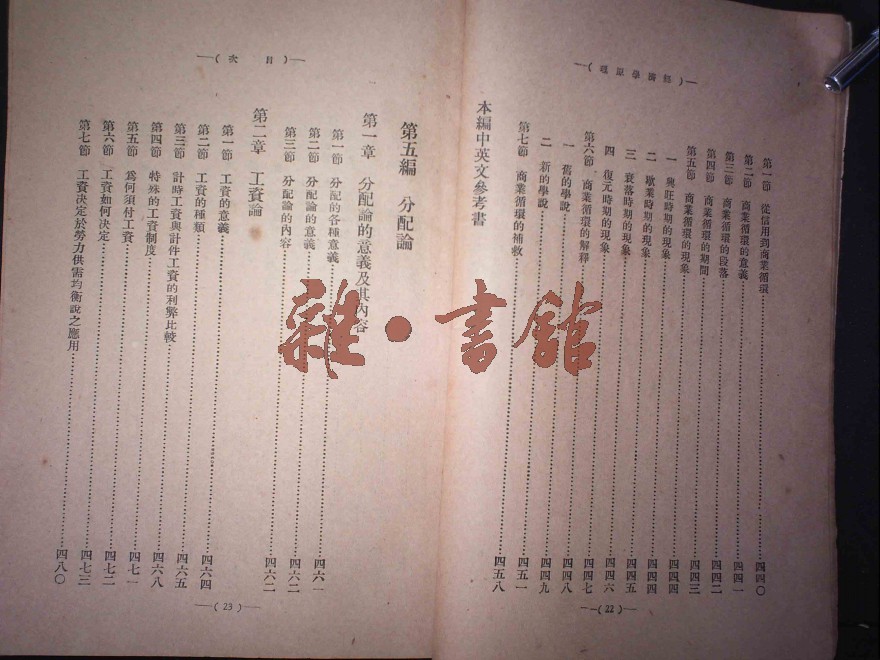 —(經濟學原理)—
第一節 從信用到商業循環………四四〇
第二節 商業循環的意義………四四一
第三節 商業循環的段落………四四二
第四節 商業循環的期間………四四三
第五節 商業循環的現象………四四四
一 興旺時期的現象………四四四
二 歇業時期的現象………四四五
三 衰落時期的現象………四四六
四 復元時期的現象………四四七
第六節 商業循環的解釋………四四八
一 舊的學說………四四九
二 新的學說………四五一
第七節 商業循環的補救………四五八
本編中英文參考書
—(22)—
—(目次)—
第五編 分配論
第一章 分配論的意義及其內容
第一節 分配的各種意義………四六一
第二節 分配論的意義………四六二
第三節 分配論的內容………四六二
第二章 工資論
第一節 工資的意義………四六四
第二節 工資的種類………四六五
第三節 計時工資與計件工資的利弊比較………四六八
第四節 特殊的工資制度………四七一
第五節 爲何須付工資………四七二
第六節 工資如何決定………四七三
第七節 工資決定於勞力供需均衡說之應用………四八〇
—(23)—
雜·書館